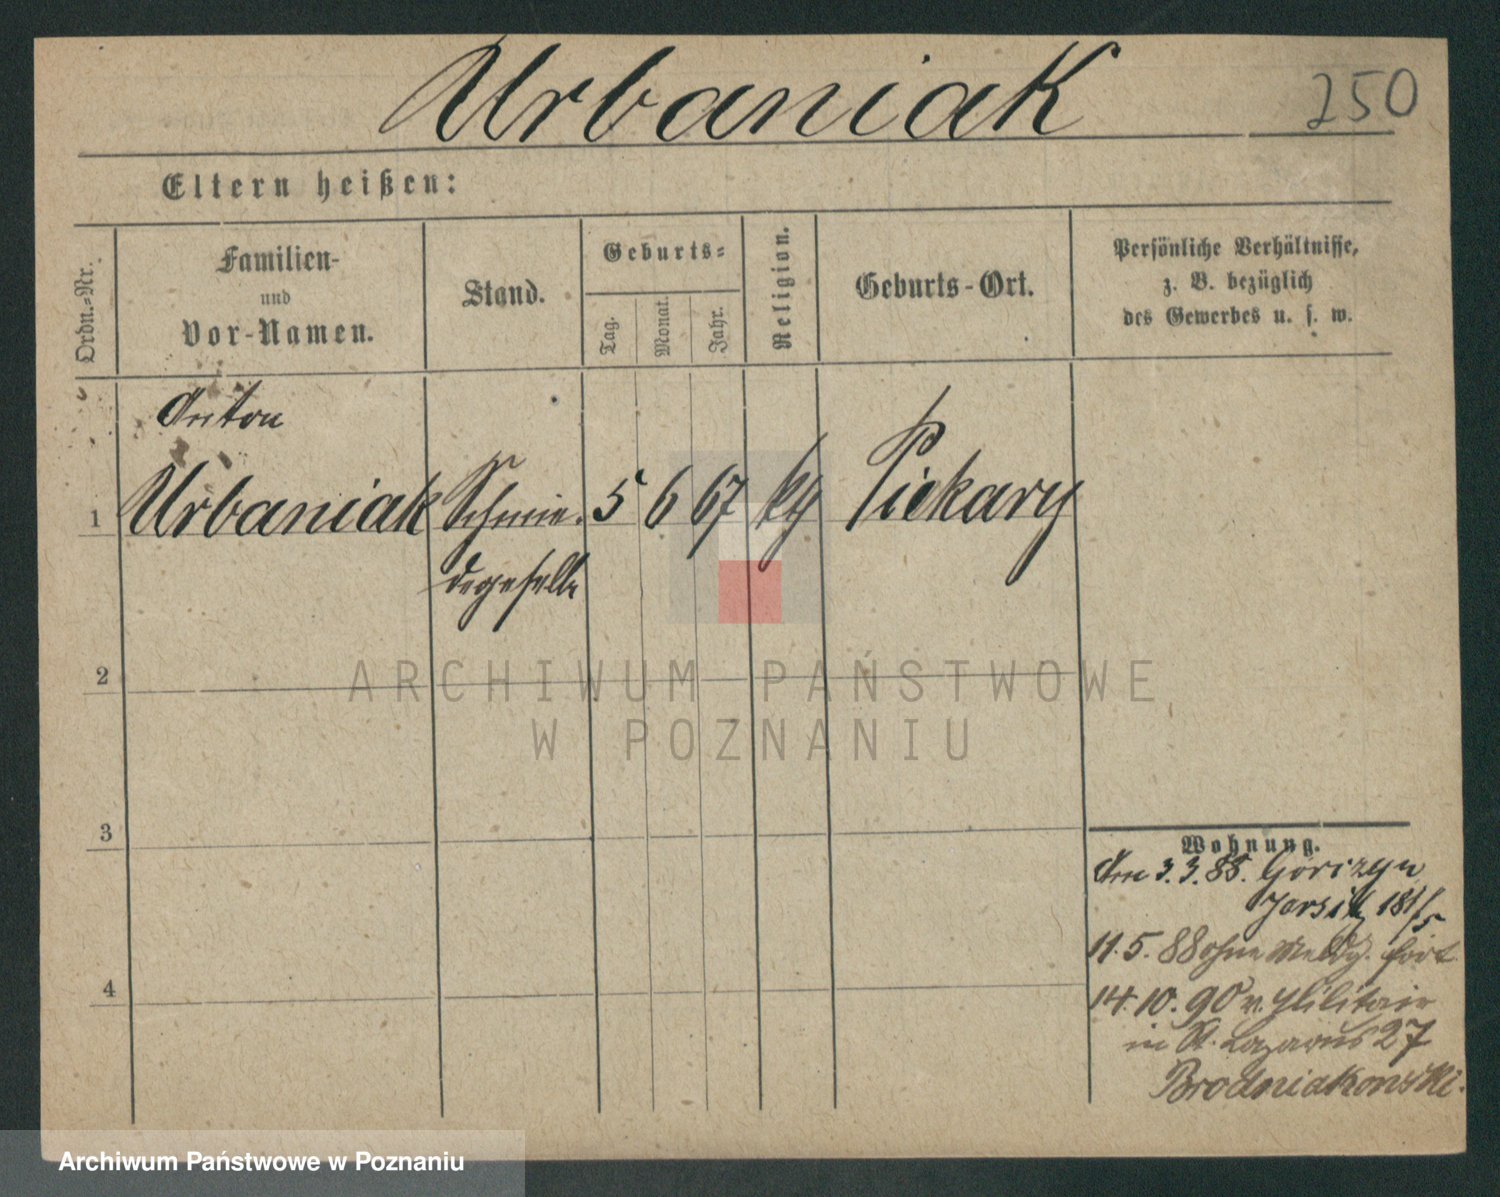 Urbaniak
250
Eltern heißen:
Ordn.=Nr.
Familien-
und
Vor-Namen.
Stand.
Geburts=
Tag.
Monat.
Jahr.
Religion.
Geburts-Ort.
Persönliche Verhältnisse,
z. B. bezüglich
des Gewerbes u. s. w.
Anton
1 Urbaniak Schmie. 5 6 67 kg Piekary
degeselle
2
3
4
Wohnung.
3.3.88. Górczyn
Jersitz 181/5
11.5.88 ohne Meldg. fort
14.10.90 v. Militair
in St. Lazarus 27
Brodniakowski.
ARCHIWUM PAŃSTWOWE
W POZNANIU
Archiwum Państwowe w Poznaniu